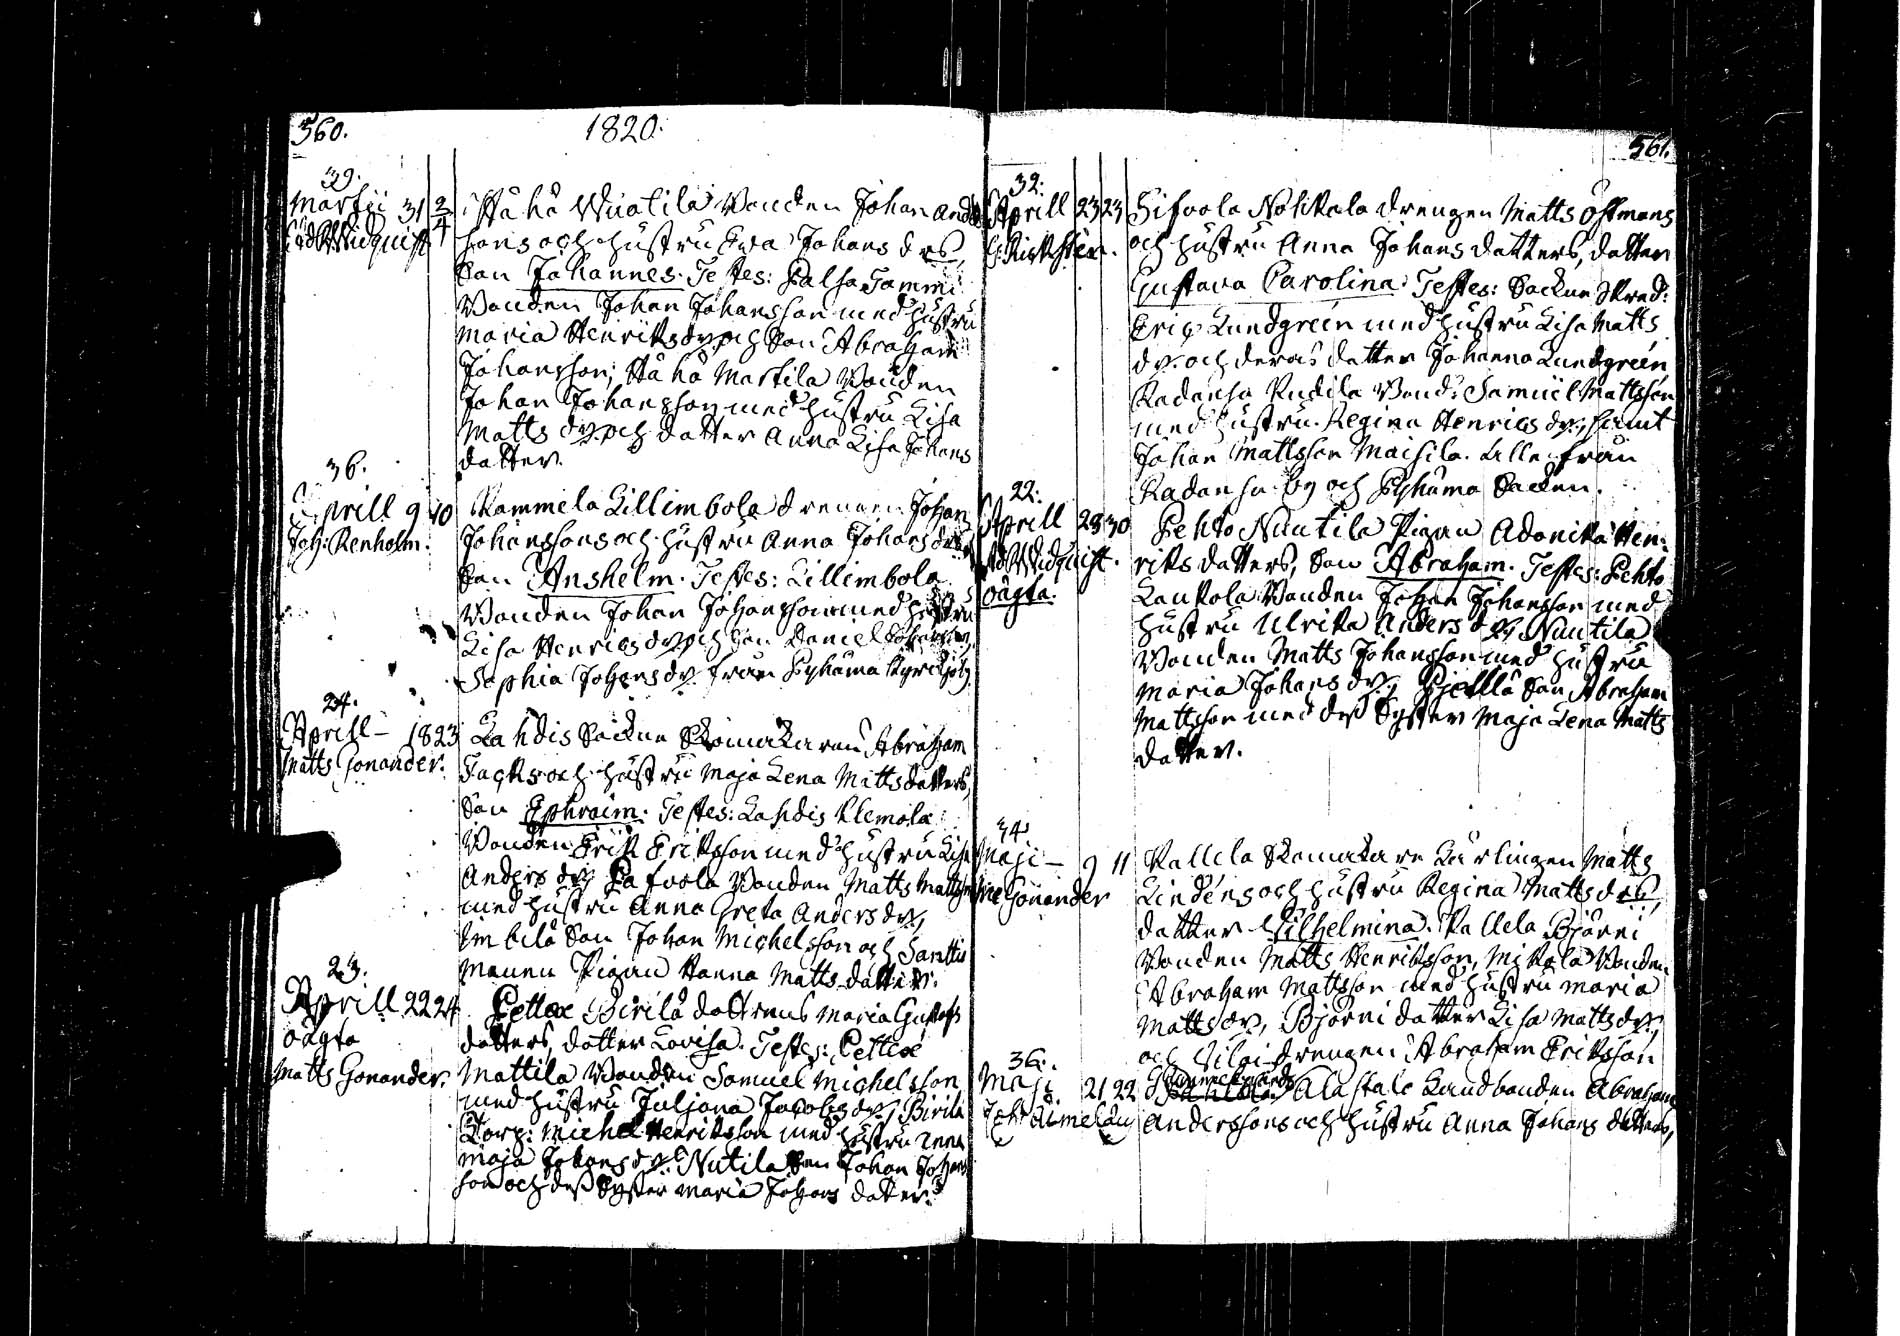 560.
1820.
39.
Martii 31 2/4
Widquist
Stå hå Wuotila Bonden Johan Anders
sons och hustru Eva Johans drs,
Son Johannes. Testes: Palsa Tammi
Bonden Johan Johansson med hustru
Maria Henriks dr och Son Abraham
Johansson; Stå hå Martila Bonden
Johan Johansson med hustru Lisa
Matts dr. och datter Anna Lisa Johans
datter.
36.
Aprill 9 10
Joh: Renholm.
Kammela Lillimbola drengen Johan
Johanssons och hustru Anna Johans drs
Son Anshelm. Testes: Lillimbola
Bonden Johan Johansson med hustru
Lisa Henrics dr och Son Daniel Johansson,
Sophia Johans dr. från Pyhäma
24.
Aprill – 18 23
Matts Gonander.
Lahdis Sockne Skomakaren Abraham
och hustru Maja Lena Matts datters,
Son Ephraim. Testes: Lahdis Klemola
Bonden Erik Eriksson med hustru Lisa
Anders dr, Bonden Matts Mattsson
med hustru Anna Greta Anders dr,
Son Johan Michelsson och Santtio
Pigan Hanna Matts datter.
23.
Aprill 22 24
oägta
Matts Gonander.
Pettex Birilä dottrens Maria Gustafs
datters, datter Lovisa. Testes: Pettex
Mattila Bonden Samuel Michelsson
med hustru Juljana Jacobs dr, Birilä
Torp: Michel Henriksson med hustru Anna
Maja Johans dr. Nutila Son Johan Johans
son och dess Syster Maria Johans datter.
561.
32.
Aprill 23 23
Rickstén.
Sifvola Nohkola drengen Matts Östmans
och hustru Anna Johans datters, datter
Gustava Carolina. Testes: Sockne Skred:
Eric Lundgreén med hustru Lisa Matts
dr. och deras datter Johanna Lundgreén
Radansu Kudila Bond: Samuel Mattsson
med hustru Regina Henrics dr, samt
Johan Mattsson Maisila. Alla från
Radansu by och Pyhäma Socken.
22.
Aprill 28 30
Widquist.
oägta.
Lehto Nuutila Pigan Adonika Hen:
riks datters, Son Abraham. Testes: Lehto
Laukola Bonden Johan Johansson med
hustru Ulrika Anders dr, Nuutila
Bonden Matts Johansson med hustru
Maria Johans dr, Pjettlä Son Abraham
Mattsson med dess Syster Maja Lena Matts
datter.
34.
Maji – 9 11
Gonander
Kallela Skomakare Lärlingen Matts
Lindéns och hustru Regina Matts drs,
datter Vilhelmina. Kallela Björni
Bonden Matts Henriksson, Mikola Bonden
Abraham Mattsson med hustru Maria
Matts dr, Björni datter Lisa Matts dr,
och drengen Abraham Eriksson
36.
Maji 21 22
Almelau
Alastalo Landbonden Abraham
Anderssons och hustru Anna Johans datters,